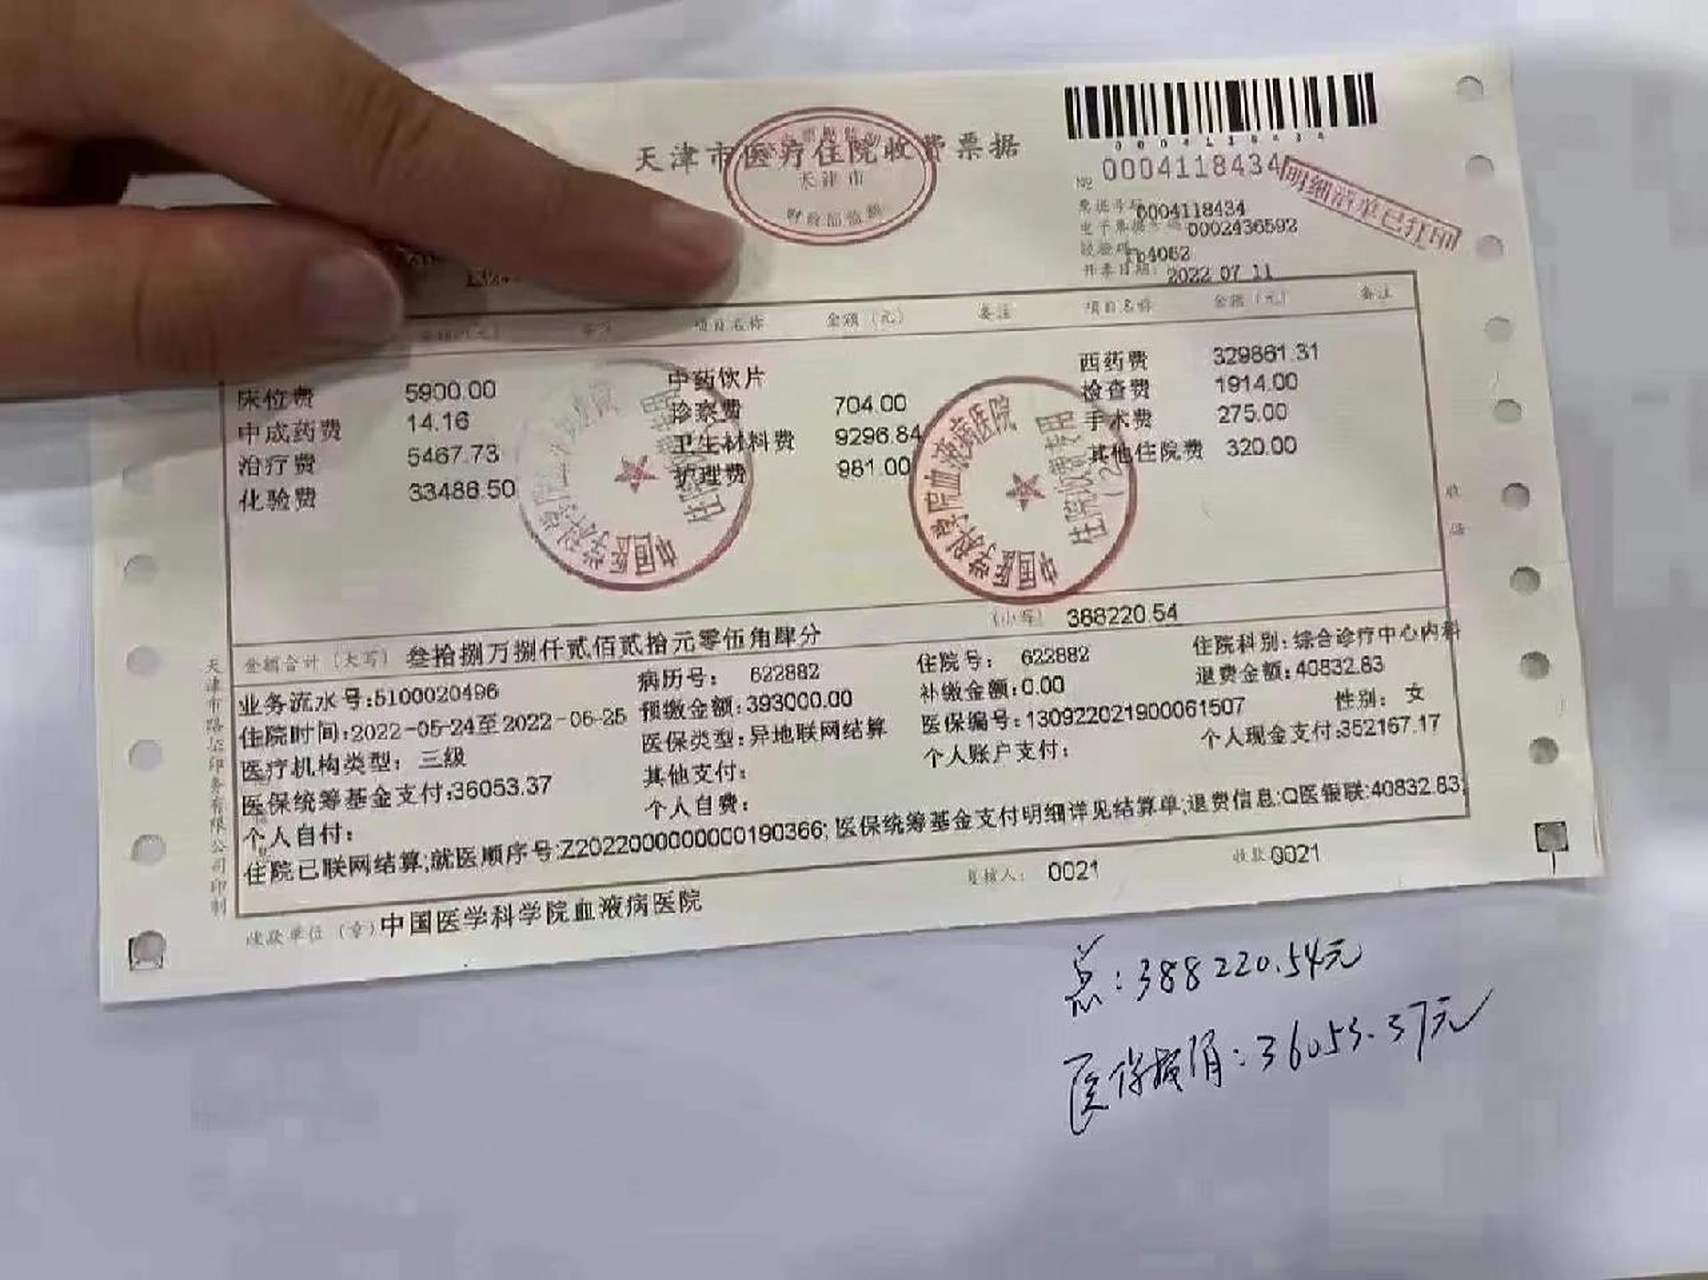 天津市医疗住院收费票据
天津市
财政部监制
0004118434
№ 0004118434
明细清单已打印
票据号码:0004118434
电子票据号码 0002436592
校验码:fb4062
开票日期: 2022 07 11
项目名称 金额（元） 备注 项目名称 金额（元） 备注
床位费 5900.00 中药饮片 西药费 329861.31
中成药费 14.16 诊察费 704.00 检查费 1914.00
治疗费 5467.73 卫生材料费 9296.84 手术费 275.00
化验费 33486.50 护理费 981.00 其他住院费 320.00
中国医学科学院血液病医院
住院收费专用
中国医学科学院血液病医院
住院收费专用
(2)
金额合计（大写）叁拾捌万捌仟贰佰贰拾元零伍角肆分 （小写） 388220.54
业务流水号:5100020496 病历号: 622882 住院号: 622882 住院科别:综合诊疗中心内科
住院时间:2022-05-24至2022-06-25 预缴金额:393000.00 补缴金额:0.00 退费金额:40832.83
医疗机构类型: 三级 医保类型:异地联网结算 医保编号:130922021900061507 性别: 女
医保统筹基金支付:36053.37 其他支付: 个人账户支付: 个人现金支付:352167.17
个人自付: 个人自费:
住院已联网结算;就医顺序号:Z2022000000000190366; 医保统筹基金支付明细详见结算单;退费信息:Q医银联:40832.83;
收款单位（章）中国医学科学院血液病医院 复核人: 0021 收款 0021
总:388220.54元
医保报销:36053.37元